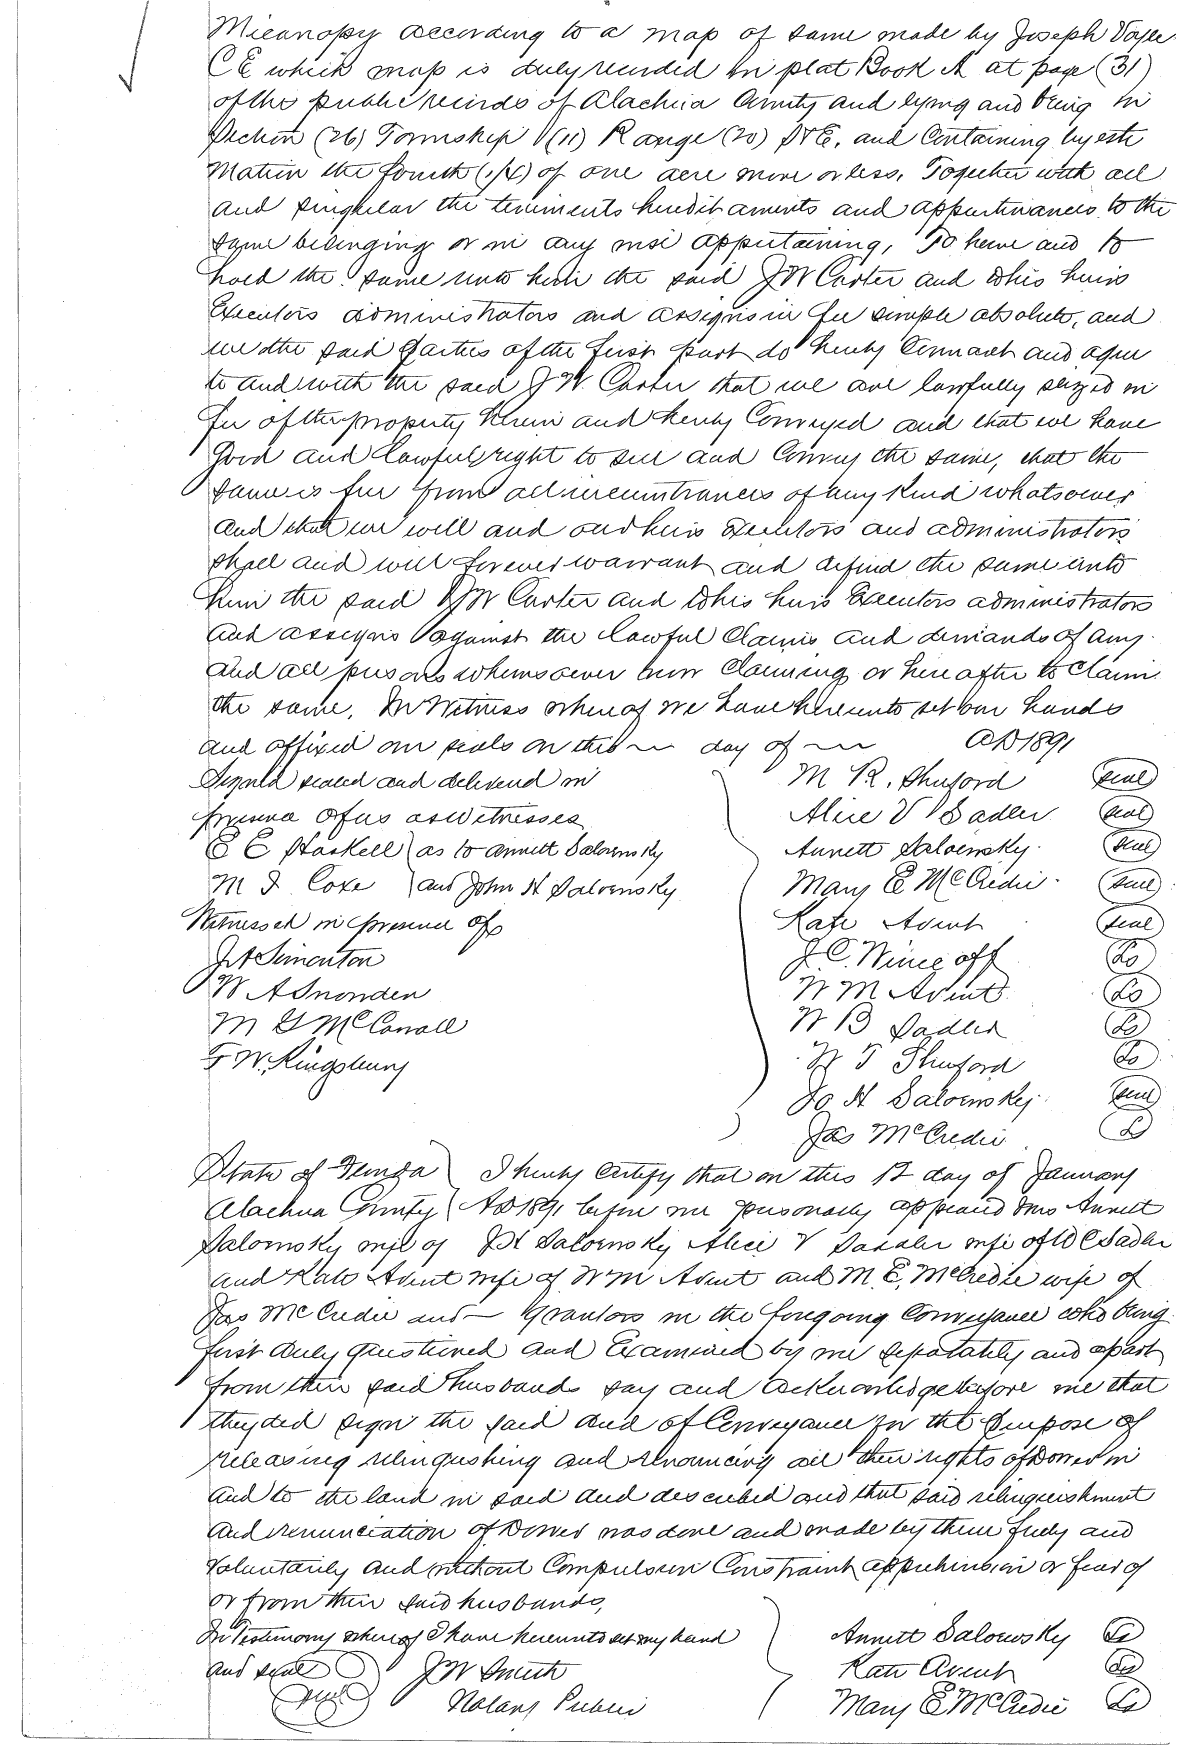 Micanopy according to a map of same made by Joseph Voyle
C E which map is duly recorded in plat Book A at page (31)
of the public records of Alachua County and lying and being in
Section (26) Township (11) Range (20) S & E. and Containing by esti
Mation the fourth (1/4) of one acre more or less. Together with all
and singular the teniments heredit aments and appurtinances to the
same belonging or in any wise appertaining, To have and to
hold the same unto him the said J W Carter and to his heirs
Executors administrators and assigns in fee simple absolute, and
we the said Parties of the first part do hereby Covenant and agree
to and with the said J W Carter that we are lawfully seized in
fee of the property herein and hereby Conveyed and that we have
Good and lawful right to sell and Convey the same, that the
same is free from all incumbrances of any kind whatsoever
and that we will and our heirs Executors and administrators
shall and will forever warrant and defend the same unto
him the said J W Carter and to his heirs Executors administrators
and assigns against the lawful Claims and demands of any
and all persons whomsoever now Claiming or here after to Claim
the same. In Witness where of we have hereunto set our hands
and affixed our seals on this — day of — AD 1891
Signed sealed and delivered in M R. Shuford seal
presence of us as Witnesses Alice V Sadler seal
E E Haskell as to Annett Saloensky Annett Saloensky seal
M J Coxe and John H Saloensky Mary E McCredie seal
Witnessed in presence of Kate Avent seal
J A Simonton J. C. Wince off Ls
W A Snonden W M Avent Ls
M G McConall W B Sadler Ls
F W. Kingsbury W T Shuford Ls
Jo H Saloensky seal
Jas McCredie Ls
State of Florida I hereby certify that on this 12 day of January
Alachua County AD 1891 before me personally appeared Mrs Annett
Salomsky wife of J H Saloensky Alice V Saddler wife of W C Sadler
and Kate Avent wife of W M Avent and M. E. McCredie wife of
Jas McCredie and — Grantors in the foregoing Conveyance who being
first duly questioned and Examined by me sepatately and apart
from their said husbands say and acknowledge before me that
they did sign the said deed of Conveyance for the purpose of
releasing relinqushing and renouncing all their rights of Dower in
and to the land in said deed described and that said relinquishment
and renunciation of Dower was done and made by them freely and
voluntarily and without Compulsion Constraint apprehension or fear of
or from their said husbands,
In Testimony where of I have hereunto set my hand Annett Saloensky Ls
and seal J W Smith Kate Avent Ls
seal Notary Public Mary E McCredie Ls